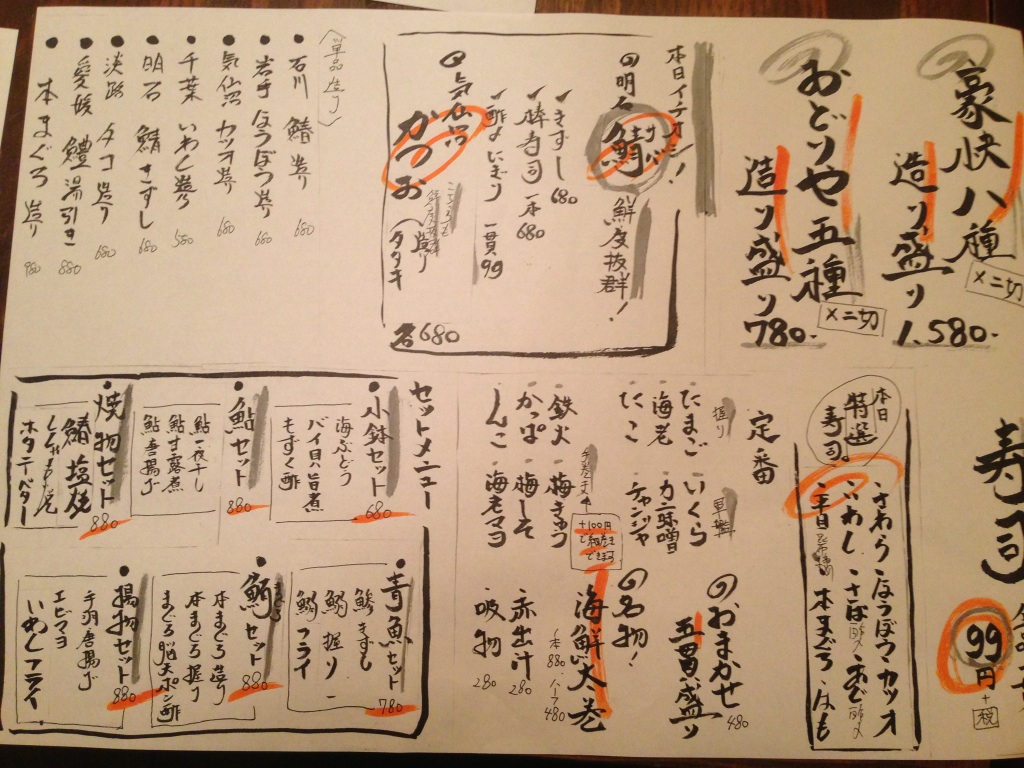 豪快八種
造り盛り
×二切
1.580-
おどりや五種
造り盛り
×二切
780-
本日イチオシ!
明石 鯖
鮮度抜群!
きずし 680
棒寿司 一本 680
酢〆にぎり 一貫99
気仙沼
かつお
造り
タタキ
各680
〈単品造り〉
石川 鰆 造り 680
岩手 ほうぼう 造り 680
気仙沼 カツオ 造り 680
千葉 いわし 造り 580
明石 鯖 きずし 680
淡路 タコ 造り 680
愛媛 鱧 湯引き 880
本まぐろ 造り 980
寿司
99円+税
本日特選寿司。
さわら・ほうぼう・カツオ
いわし・さば酢〆・あじ酢〆
平目昆布〆・本まぐろ・はも
定番
握り
たまご
海老
たこ
軍艦
いくら
カニ味噌
チャンジャ
おまかせ
五貫盛り 480
鉄火
かっぱ
しんこ
梅きゅう
梅しそ
海老マヨ
+100円で
名物!
海鮮大巻
1本880 ハーフ480
赤出汁 280
吸物 280
セットメニュー
小鉢セット 680
海ぶどう
バイ貝の旨煮
もずく酢
鮎セット 880
鮎一夜干し
鮎甘露煮
鮎唐揚げ
焼物セット 880
鰆塩焼
ホタテバター
青魚セット 780
鯵きずし
鰯握り
鰯フライ
まぐろセット 880
本まぐろ造り
本まぐろ握り
まぐろ脳天ポン酢
揚物セット 880
手羽唐揚げ
エビマヨ
いわしフライ